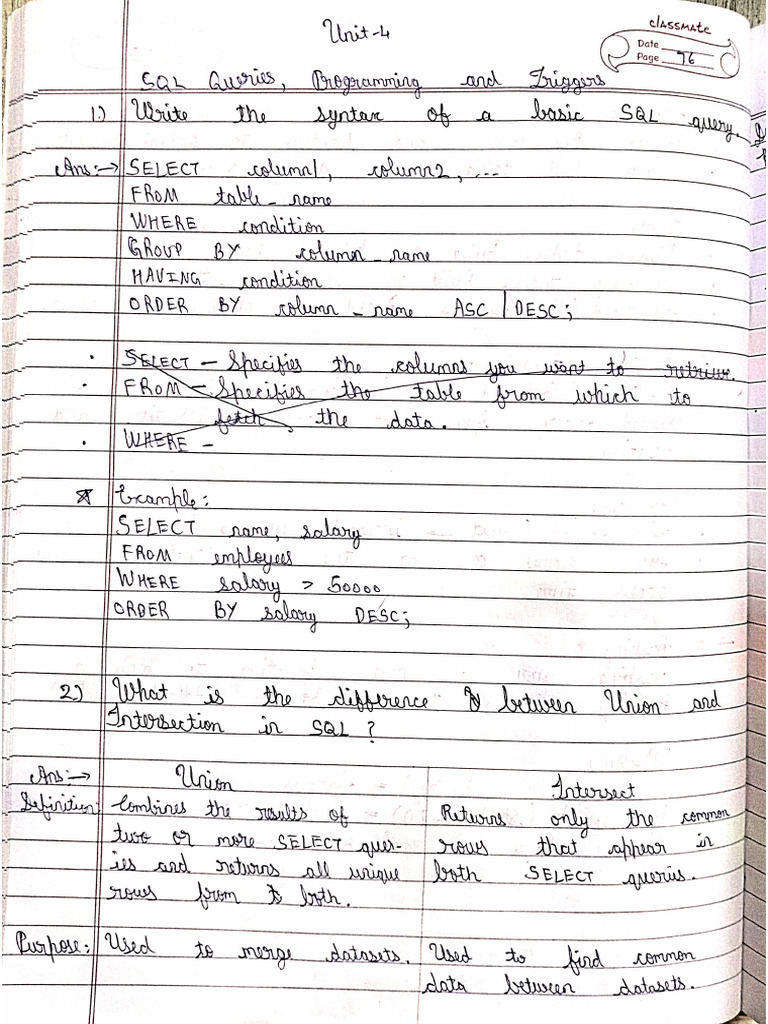 Unit-4
classmate
Date
Page 76
SQL Queries, Programming and Triggers
1) Write the syntax of a basic SQL query.
Ans:→ SELECT column1, column2, ...
FROM table_name
WHERE condition
GROUP BY column_name
HAVING condition
ORDER BY column_name ASC | DESC;
• SELECT – Specifies the columns you want to retrieve.
• FROM – Specifies the table from which to
fetch the data.
• WHERE –
* Example:
SELECT name, salary
FROM employees
WHERE salary > 50000
ORDER BY salary DESC;
2) What is the difference between Union and
Intersection in SQL?
Ans:→ Union Intersect
Definition: Combines the results of
two or more SELECT quer-
ies and returns all unique
rows from both.
Returns only the common
rows that appear in
both SELECT queries.
Purpose: Used to merge datasets.
Used to find common
data between datasets.